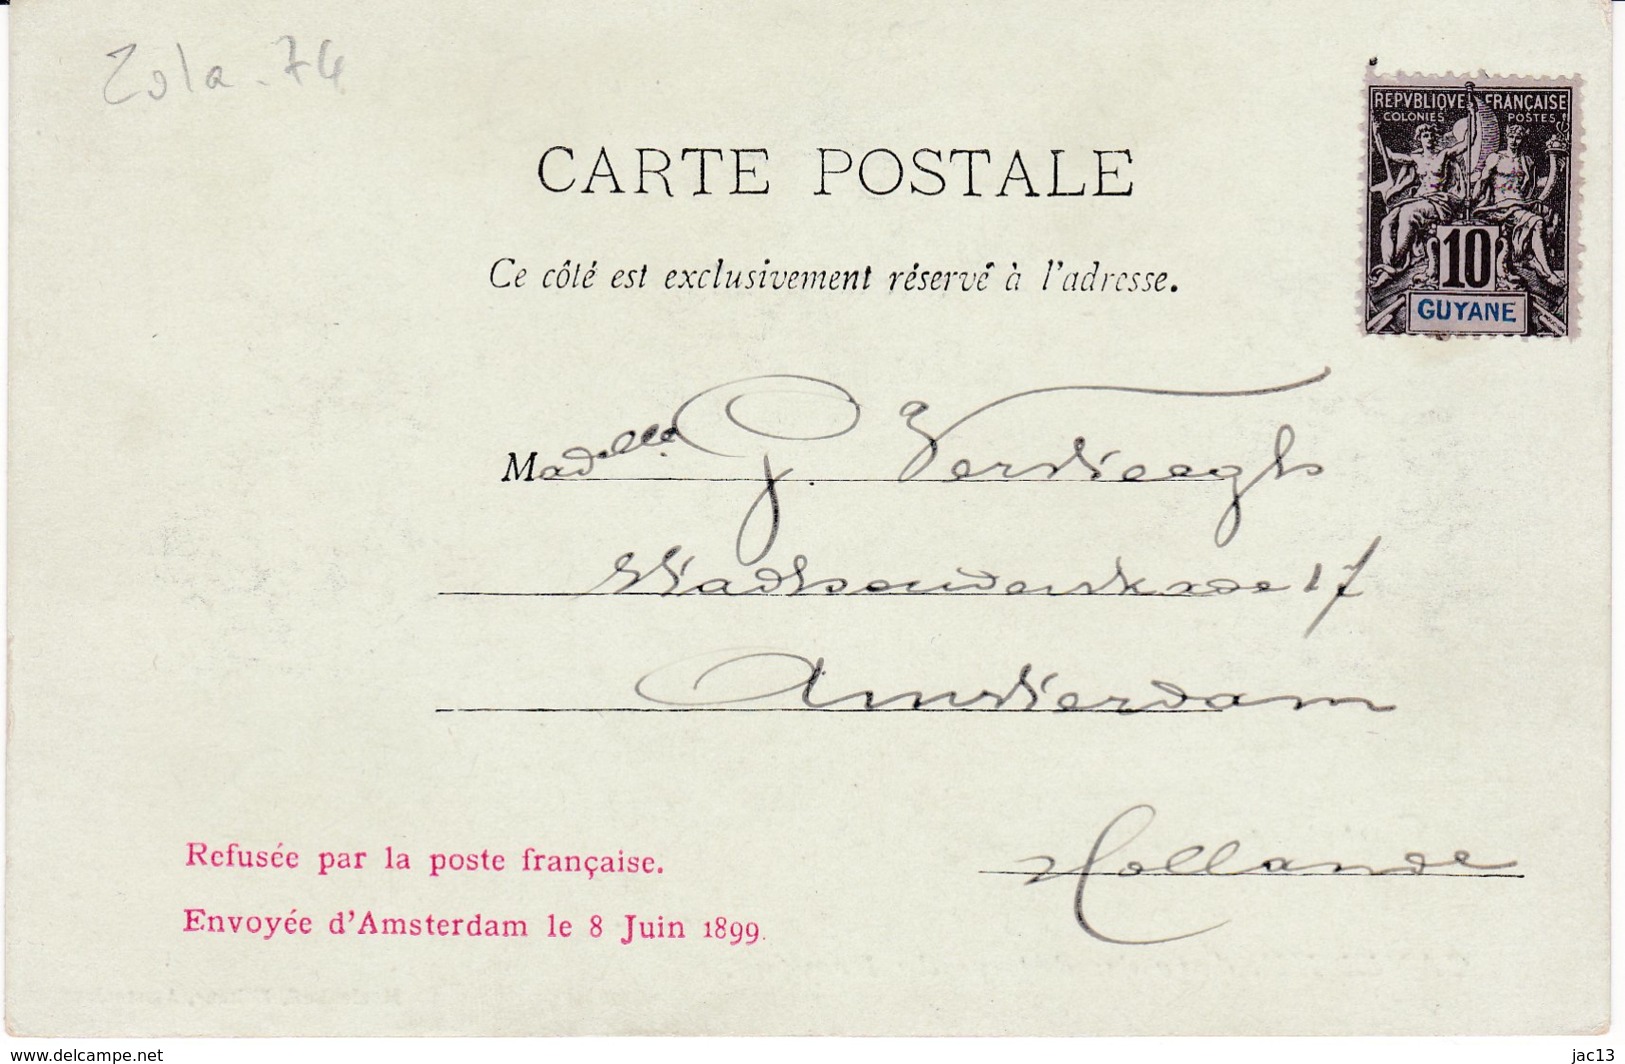 Zola - 74
REPVBLIQVE FRANÇAISE
COLONIES POSTES
10
GUYANE
CARTE POSTALE
Ce côté est exclusivement réservé à l'adresse.
Madelle G. Verstieegh
Stadhouderskade 17
Amsterdam
Hollande
Refusée par la poste française.
Envoyée d'Amsterdam le 8 Juin 1899.
www.delcampe.net
jac13